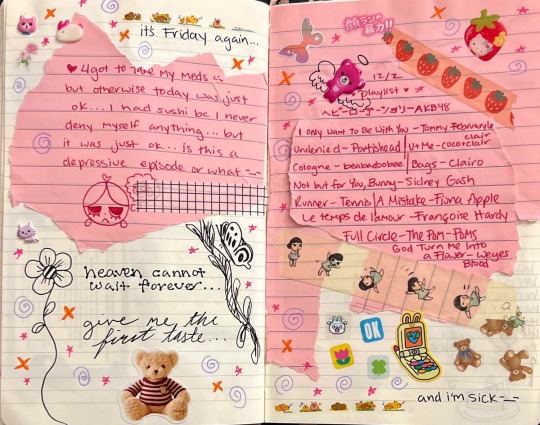 it's Friday again...
♥ 4got to take my meds :
but otherwise today was just
ok... I had sushi bc I never
deny myself anything... but
it was just ok... is this a
depressive episode or what -_-
heaven cannot
wait forever...
give me the
first taste...
顔ランの
暴力!!
12/2
playlist ♥
ヘビーローテーション-AKB48
I Only Want To Be With You - Tommy February6
undenied - Portishead
U+Me - coco&clair
clair
Cologne - beabadoobee
Bags - Clairo
Not but for You, Bunny - Sidney Gash
Runner - Tennis
A Mistake - Fiona Apple
Le temps de l'amour - Françoise Hardy
Full Circle - The Pom-Poms
God Turn Me Into
a Flower - Weyes
Blood
OK
and i'm sick -_-